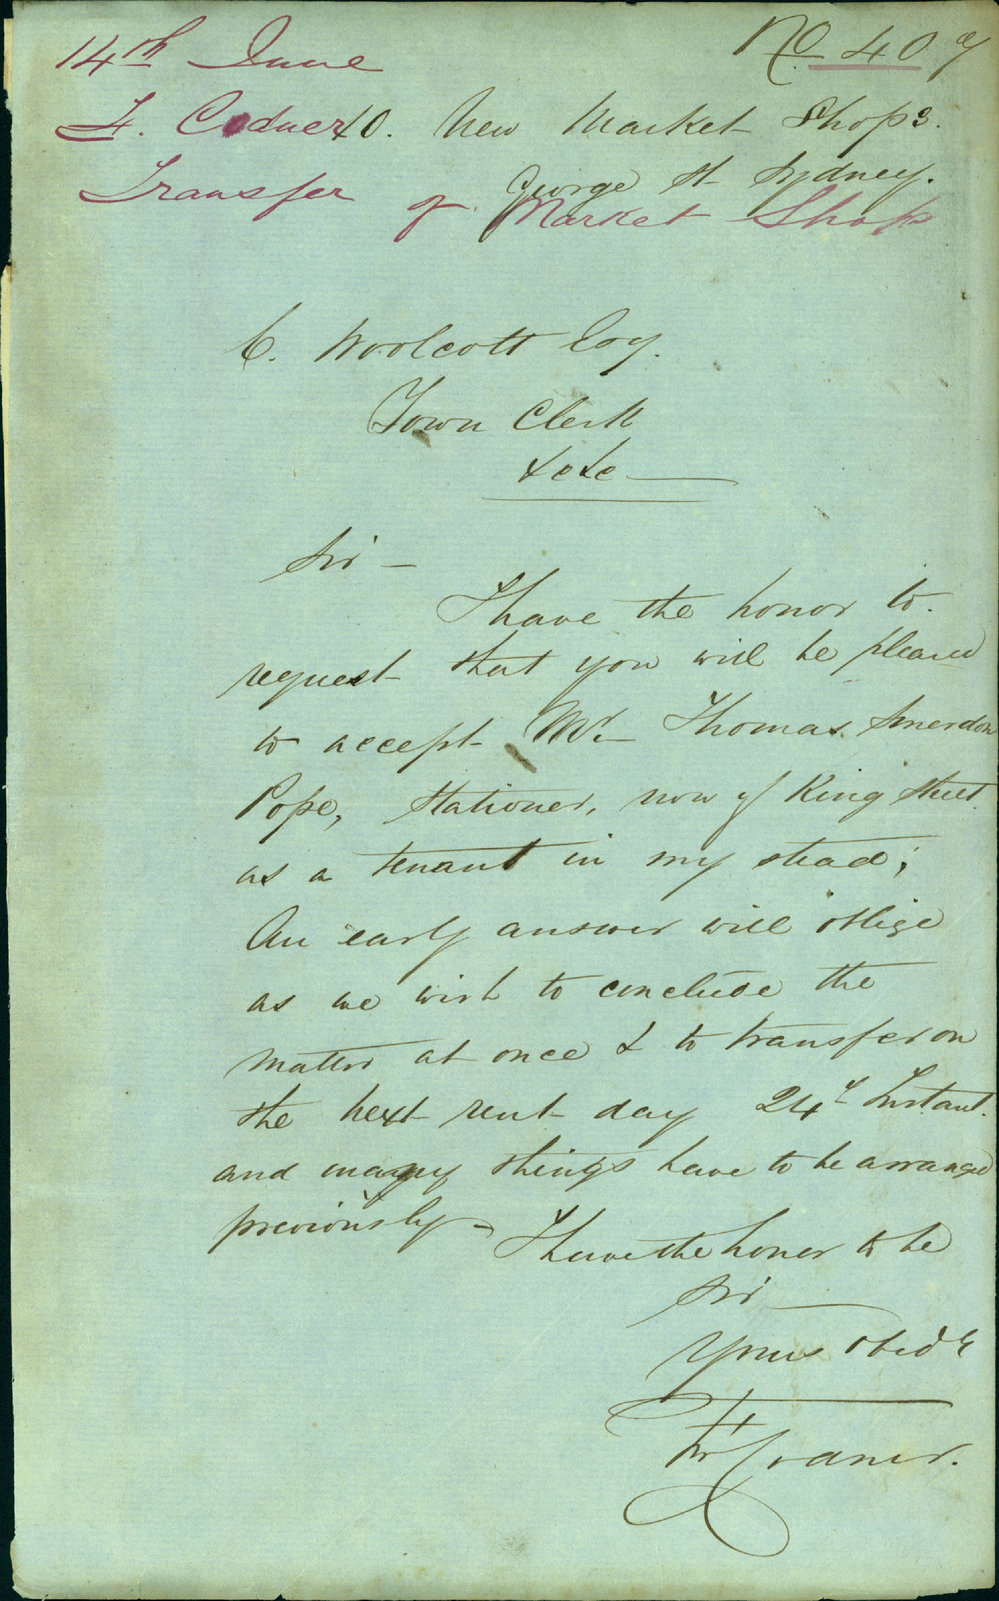 14th June
No 407
F. Codner
40. New Market Shops.
George St Sydney.
Transfer of Market Shop
C. Woolcott Esq.
Town Clerk
&c &c
Sir —
I have the honor to
request that you will be pleased
to accept Mr Thomas Smerdon
Pope, Stationer, now of King Street
as a tenant in my stead;
An early answer will oblige
as we wish to conclude the
matter at once & to transfer on
the next rent day 24th Instant.
and many things have to be arranged
previously —
I have the honor to be
Sir —
Yours obedt
Codner.